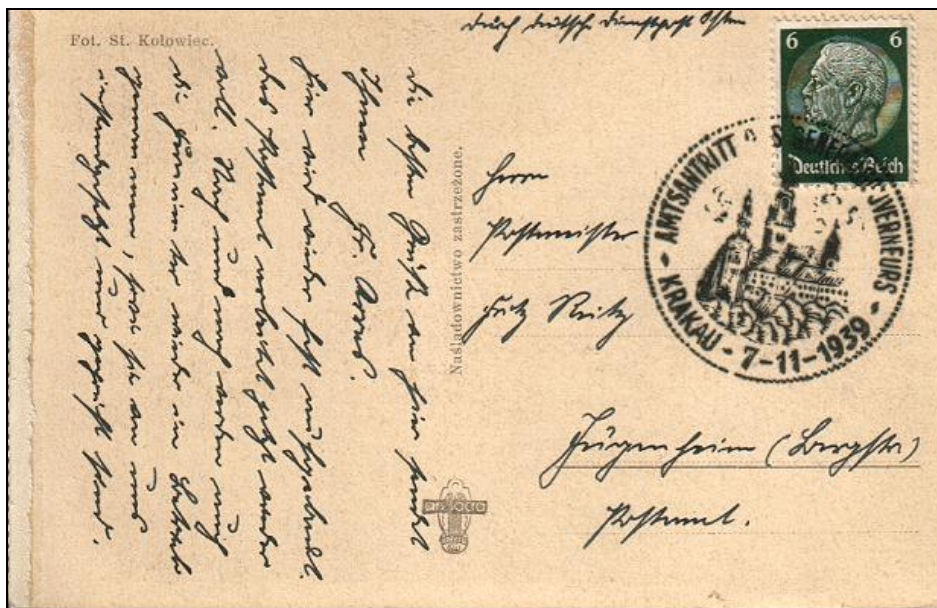 Fot. St. Kołowiec.
durch deutsche Dienstpost Osten
6 6
Deutsches Reich
AMTSANTRITT GENE UVERNEURS
KRAKAU - 7-11-1939 -
Herrn
Postmeister
Fritz Reitz
Jugenheim (Bergstr)
Postamt.
Nasladownictwo zastrzeżone.
Die besten Grüße von hier sendet
Ihnen
Hier wird wieder fest aufgebaut.
das Postamt arbeitet jetzt wieder
voll. Nach und nach werden auch
die Fernämter wieder in Betrieb
genommen, sowie sie von uns
instandgesetzt und geprüft sind.